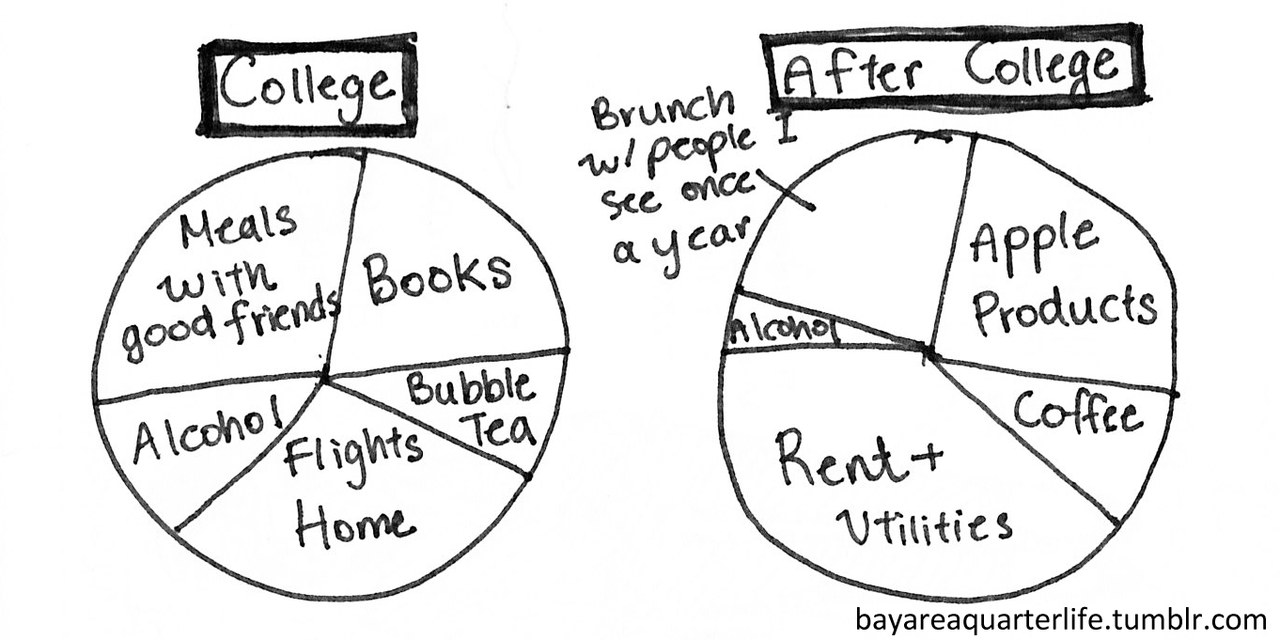 College
Meals
with
good friends
Books
Bubble
Tea
Flights
Home
Alcohol
After College
Brunch
w/ people I
see once
a year
Apple
Products
Coffee
Rent +
Utilities
Alcohol
bayareaquarterlife.tumblr.com